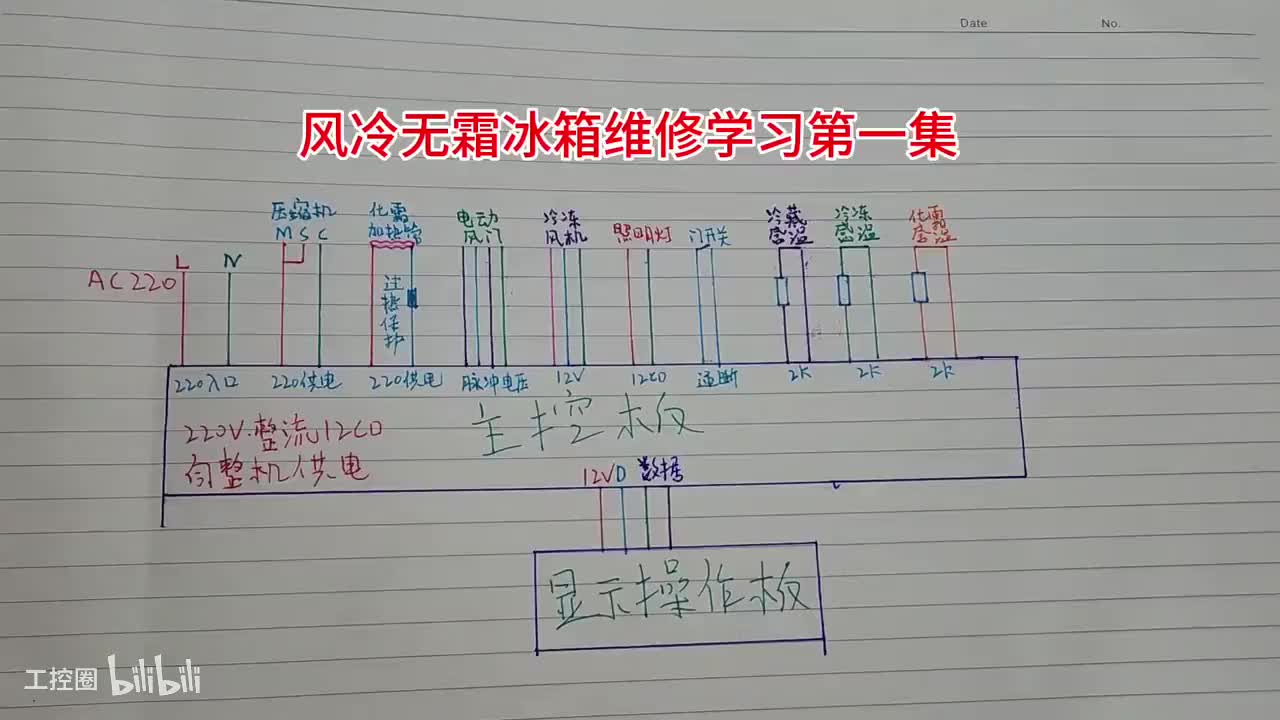 Date No.
风冷无霜冰箱维修学习第一集
压缩机
M S C
化霜
加热管
电动
风门
冷冻
风机
照明灯
门开关
冷藏
感温
冷冻
感温
化霜
感温
L N
AC220
过热保护
220入口 220供电 220供电 脉冲电压 12V 12CD 通断 2K 2K 2K
220V.整流12CD
向整机供电
主控板
12VD 数据
显示操作板
工控圈 bilibili